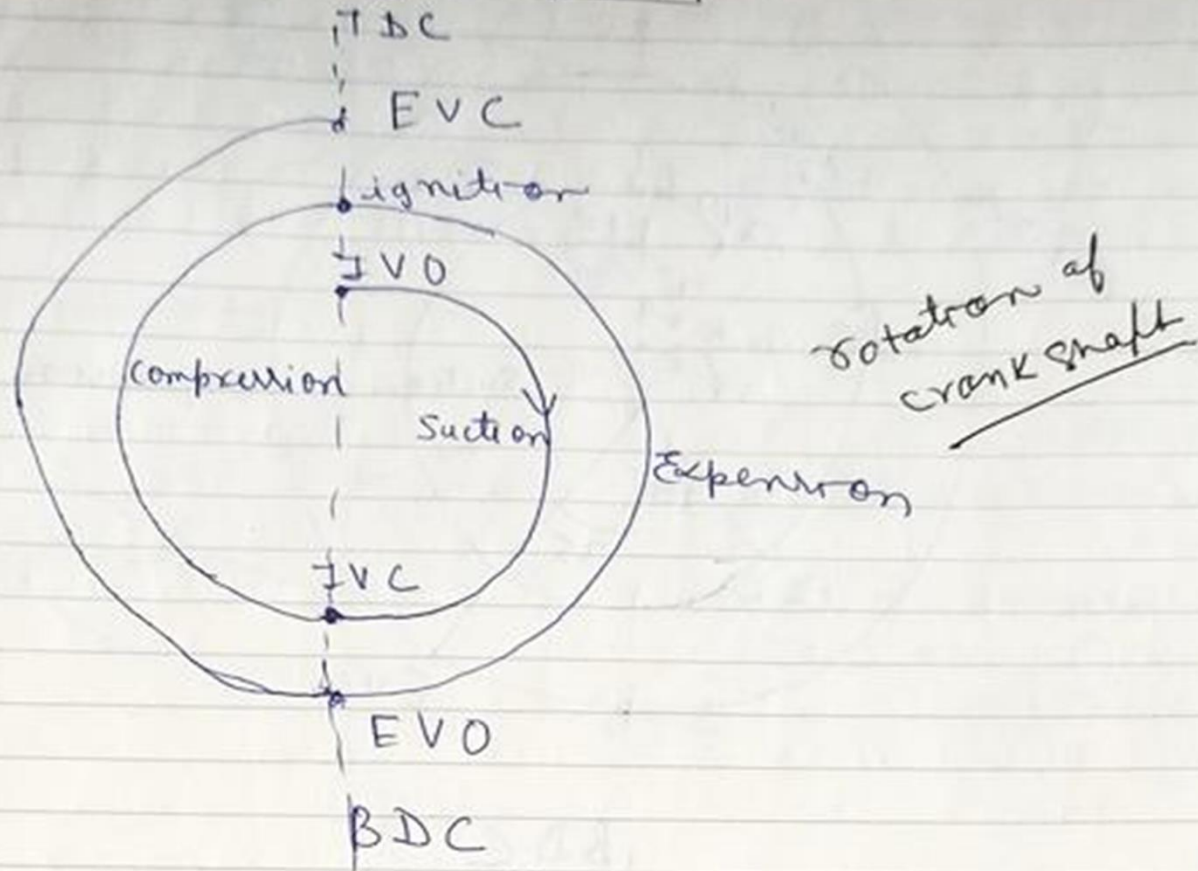 TDC
EVC
ignition
IVO
Compression
Suction
Expension
rotation of
crank shaft
IVC
EVO
BDC